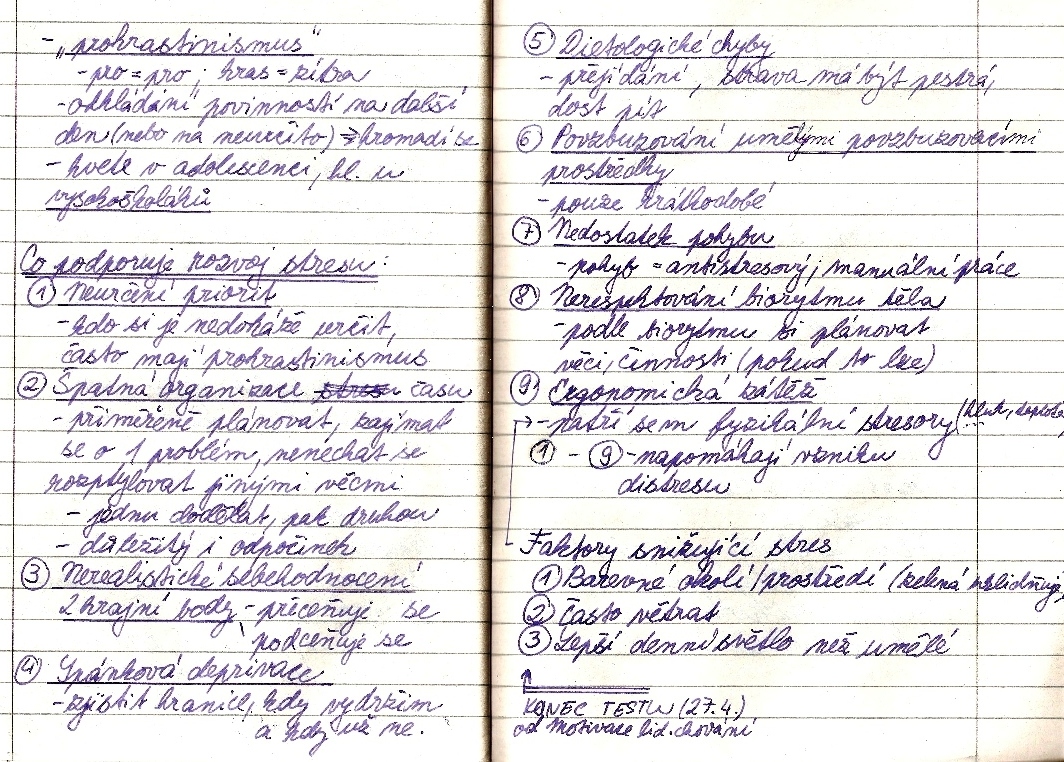 - „prokrastinismus"
- pro = pro ; kras = zítra
- odkládání povinností na další
den (nebo na neurčito) => hromadí se
- kvete v adolescenci, hl. u
vysokoškoláků
Co podporuje rozvoj stresu:
① Neurčení priorit
- kdo si je nedokáže určit,
často mají prokrastinismus
② Špatná organizace stresu času
- přiměřeně plánovat, zajímat
se o 1 problém, nenechat se
rozptylovat jinými věcmi
- jednu dodělat, pak druhou
- důležitý i odpočinek
③ Nerealistické sebehodnocení
2 krajní body - přeceňuje se
podceňuje se
④ Spánková deprivace
- zjistit hranice, kdy vydržím
a kdy už ne.
⑤ Dietologické chyby
- přejídání, strava má být pestrá,
dost pít
⑥ Povzbuzování umělými povzbuzovacími
prostředky
- pouze krátkodobé
⑦ Nedostatek pohybu
- pohyb = antistresový; manuální práce
⑧ Nerespektování biorytmu těla
- podle biorytmu si plánovat
věci, činnosti (pokud to lze)
⑨ Ergonomická zátěž
- patří sem fyzikální stresory (hluk, teplota
① - ⑨ - napomáhají vzniku
distresu
- Faktory snižující stres
① Barevné okolí / prostředí (zelená uklidňuje)
② Často větrat
③ Lepší denní světlo než umělé
KONEC TESTU (27.4.)
od Motivace lid. chování